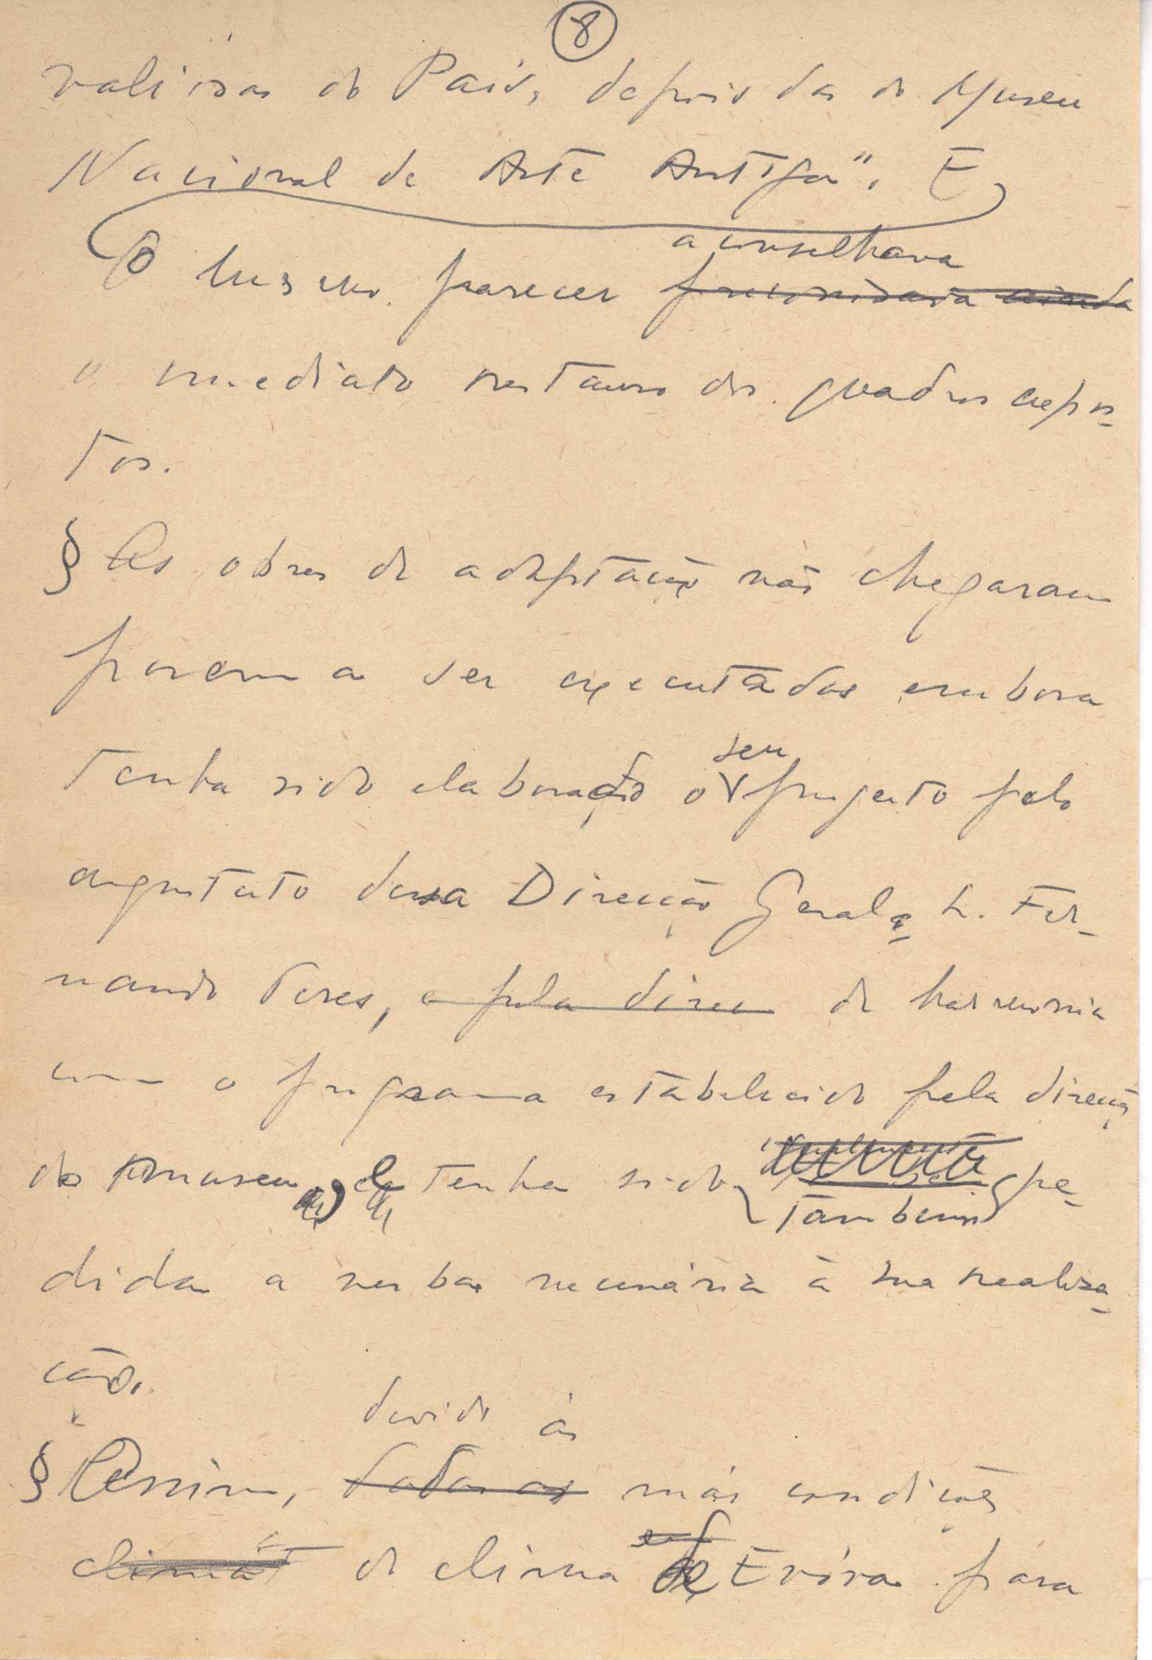 8
valiosas do País, depois das do Museu
Nacional de Arte Antiga". E
aconselhava
O mesmo parecer preconisava ainda
o imediato restauro dos quadros expos-
tos.
§ As obras de adaptação não chegaram
porem a ser executadas embora
seu
tenha sido elaborado o projecto pelo
arquitecto dessa Direcção Geral, Fer-
nando Peres, e pela direc de harmonia
com o programa estabelecido pela direcção
do museu, e tenha sido pe-
também
dida a verba necessária à sua realiza-
ção.
devido às
§ Assim, dadas as más condições
climát de clima de Evora para